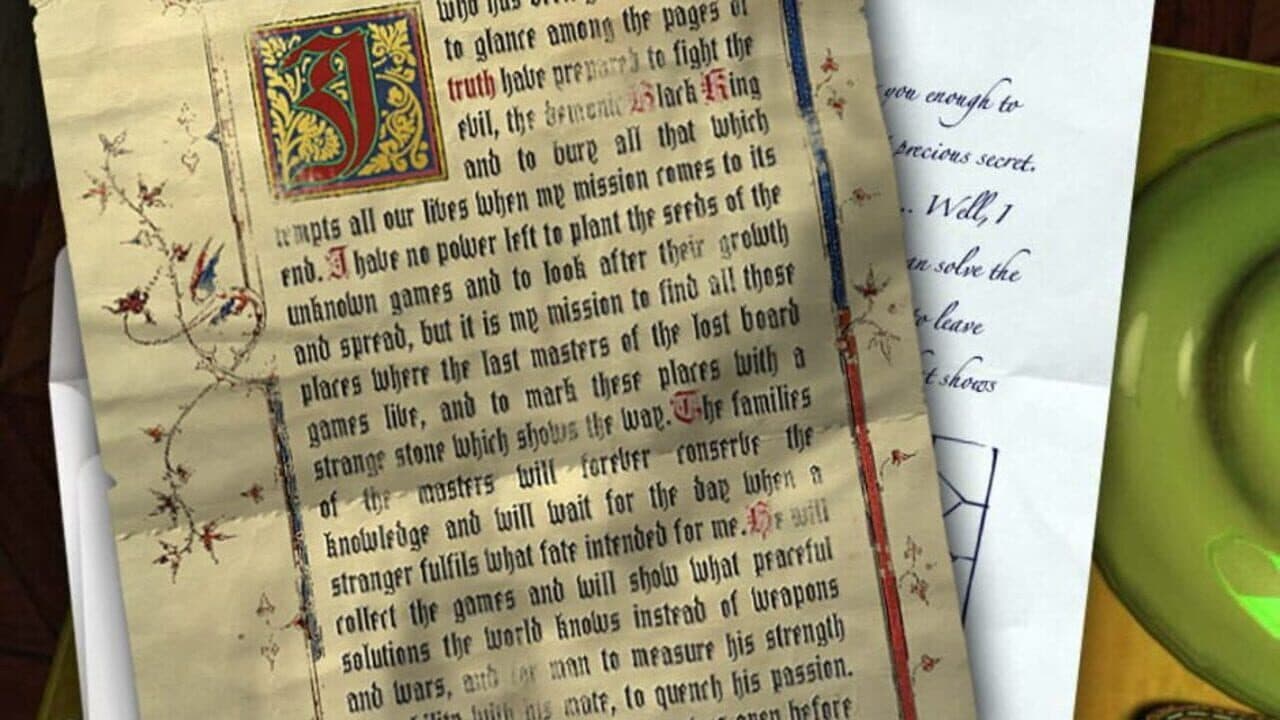 I who has
to glance among the pages of
truth have prepared to fight the
evil, the demonic Black King
and to bury all that which
tempts all our lives when my mission comes to its
end. I have no power left to plant the seeds of the
unknown games and to look after their growth
and spread, but it is my mission to find all those
places where the last masters of the lost board
games live, and to mark these places with a
strange stone which shows the way. The families
of the masters will forever conserve the
knowledge and will wait for the day when a
stranger fulfils what fate intended for me. He will
collect the games and will show what peaceful
solutions the world knows instead of weapons
and wars, and for man to measure his strength
with his mate, to quench his passion.
open before
you enough to
precious secret.
... Well, I
solve the
to leave
shows